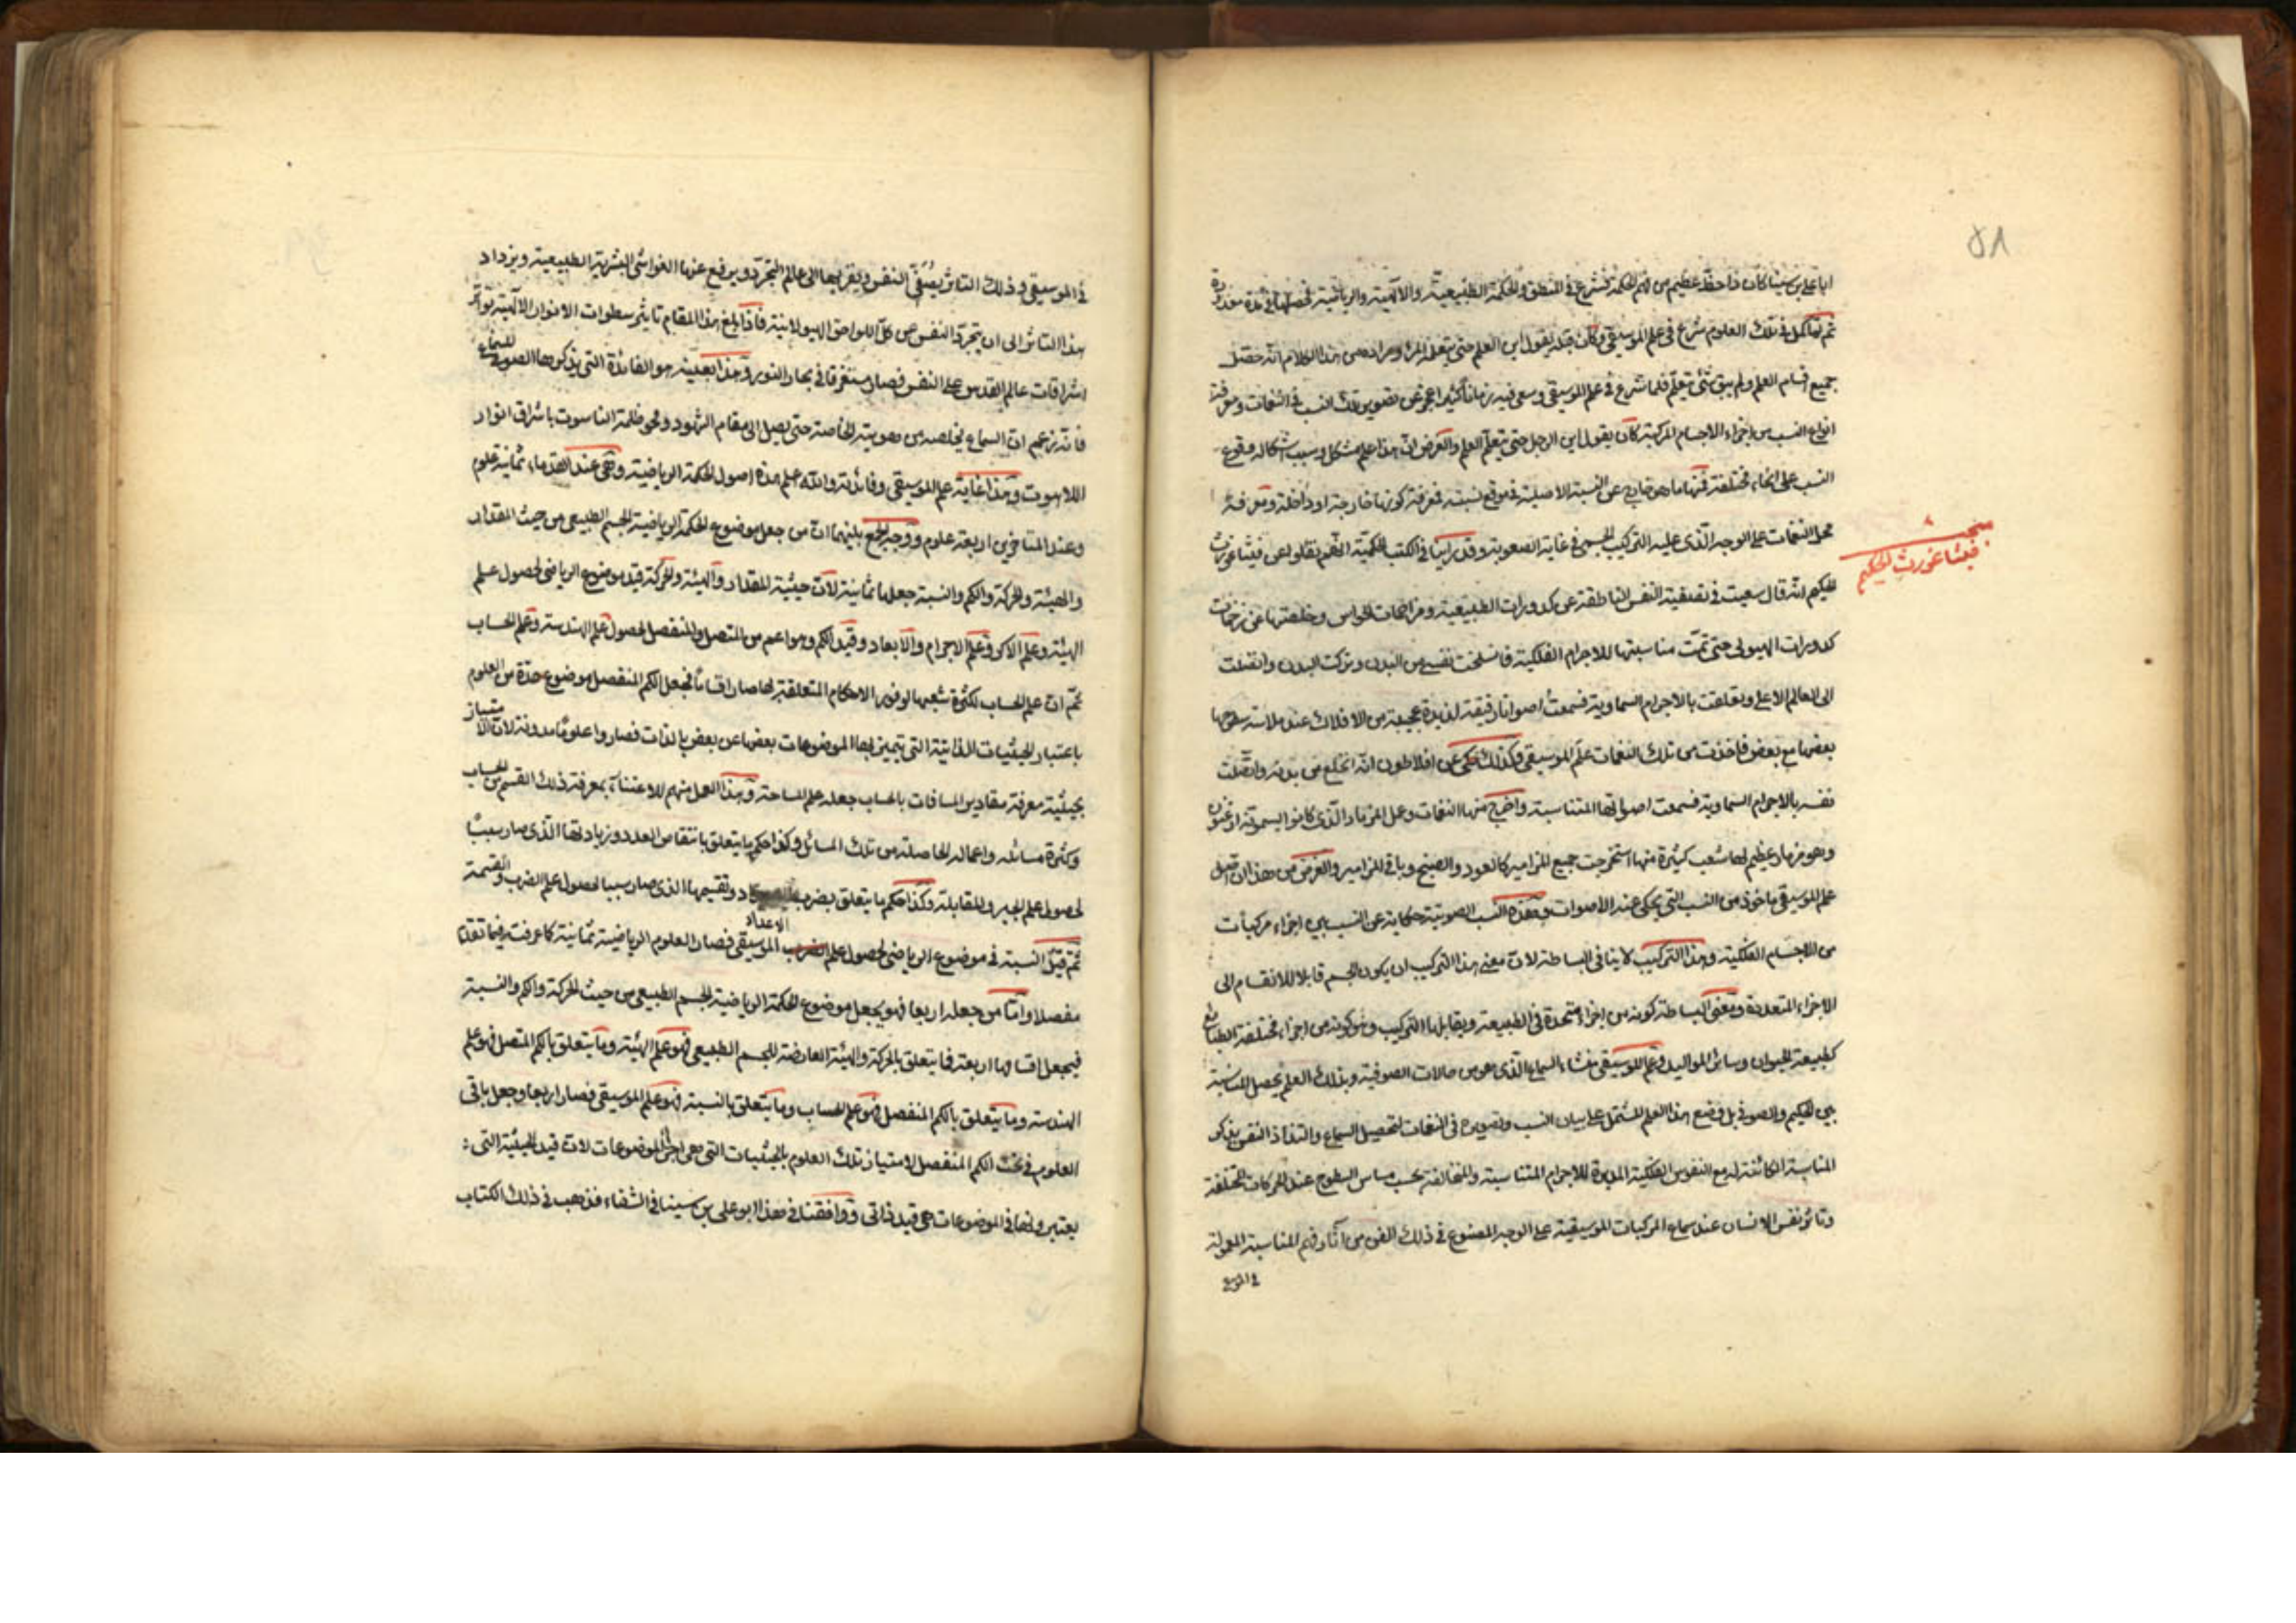 ٥٨
ابا علي بن سينا كان ذا حظ عظيم من فهم الحكمة فشرع في المنطق والحكمة الطبيعية والالهية والرياضية فحصلها في مدة
ثم لما كمل في تلك العلوم شرع في علم الموسيقى وكان قبله يقول اين العلم حتى يتعلم المرء ومراده من هذا الكلام انه حصل
جميع اقسام العلم ولم يبق شئ يتعلم فلما شرع في علم الموسيقى وسعى فيه زمانا كثيرا عجز عن تصوير تلك النسب في النغمات ومعرفة
انواع النسب من اجزاء الاجسام المركبة كان يقول اين الرجل حتى يتعلم العلم والغرض ان هذا علم مشكل وسبب اشكاله وقوع
النسب على انحاء مختلفة فمنها ما هو خارج عن النسبة الاصلية في موقع نسبته فمعرفة كونها خارجة او داخلة ومعرفة
محل النغمات على الوجه الذي عليه التركيب الجسمي في غاية الصعوبة وقد راينا في الكتب الحكمية انهم نقلوا عن فيثاغورث
مبحث فيثاغورث الحكيم
الحكيم انه قال سعيت في تصفية النفس الناطقة عن كدورات الطبيعية ومزاحمات الحواس وخلصتها عن
كدورات الهيولى حتى تمت مناسبتها للاجرام الفلكية فانسلخت نفسي من البدن وتركت البدن واتصلت
الى العالم الاعلى وتعلقت بالاجرام السماوية فسمعت اصواتا رقيقة لذيذة عجيبة من الافلاك عند ملاسة سطحها
بعضها مع بعض فاخذت من تلك النغمات علم الموسيقى وكذلك حكى عن افلاطون انه انخلع من بدنه واتصلت
نفسه بالاجرام السماوية فسمعت اصواتها المتناسبة واخرج منها النغمات وعمل المزمار الذي كانوا يسمونه ارغنون
وهو مزمار عظيم لها شعب كثيرة منها استخرجت جميع المزامير كالعود والصنج وباقي المزامير والغرض من هذا ان اصل
علم الموسيقى ماخوذ من النسب التي يحكى عنه الاصوات وهذه النسب الصوتية حكاية عن النسب بين اجزاء مركبات
من الاجسام الفلكية وهذا التركيب لا ينافي البساطة لان معنى هذا التركيب ان يكون الجسم قابلا للانقسام الى
الاجزاء المتعددة ومعنى البساطة كونه من اجزاء متحدة في الطبيعة ويقابلها التركيب وهو كونه من اجزاء مختلفة الطبائع
كطبيعة الحيوان وسائر المواليد وعلم الموسيقى منشاء السماع الذي هو من حالات الصوفية وبذلك العلم يحصل المناسبة
بين الحكيم والصوفي بل وضع هذا العلم المشتمل على بيان النسب وتصويره في النغمات لتحصيل السماع والتذاذ النفس بذكر
المناسبة الكائنة له مع النفوس الفلكية المديرة للاجرام المتناسبة والمتخالفة بحسب مماس السطوح عند الحركات المختلفة
وتاثر نفس الانسان عند سماع المركبات الموسيقية على الوجه المصنوع في ذلك الفن من آثار فهم المناسبة المعمولة
في الموسيقى
في الموسيقى وذلك التاثر يصفي النفس ويقربها الى عالم التجرد ويرفع عنها الغواشي البشرية الطبيعية ويزداد
هذا التاثر الى ان يتجرد النفس عن كل اللواحق الهيولانية فاذا بلغ هذا المقام تأثير سطوات الانوار الالهية
اشراقات عالم القدس على النفس فصار مستغرقا في بحار النور وهذا بعينه هو الفائدة التي يذكرها الصوفي للسماع
فانه زعم ان السماع يخلصه من هويته الخاصة حتى يصل الى مقام الشهود ومحو ظلمة الناسوت باشراق انوار
اللاهوت وهذا غاية علم الموسيقى وفائدته والله علم هذه اصول الحكمة الرياضية وهي عند القدماء ثمانية علوم
وعند المتاخرين اربعة علوم ووجه الجمع بينهما ان من جعل موضوع الحكمة الرياضية الجسم الطبيعي من حيث المقدار
والهيئة والحركة والكم والنسبة جعلها ثمانية لان حيثية المقدار والهيئة والحركة قيد موضوع الرياضي لحصول علم
الهيئة وعلم الاكر وعلم الاجرام والابعاد وقيد الكم وهو اعم من المتصل والمنفصل لحصول علم الهندسة وعلم الحساب
ثم ان علم الحساب لكثرة شعبها لوفور الاحكام المتعلقة بها صار اقساما فجعل الكم المنفصل موضوع عدة من العلوم
باعتبار الحيثيات الذاتية التي يتميز بها الموضوعات بعضها عن بعض بالذات فصاروا علوما مدونة لان الامتياز
بحيثية معرفة مقادير المسافات بالحساب جعله علم المساحة وهذا العمل منهم للاعتناء بمعرفة ذلك القسم من الحساب
وكثرة مسائله واعماله الحاصلة من تلك المسائل وكذا حكم ما يتعلق بانتقاص العدد وزيادتها الذي صار سببا
لحصول علم الجبر والمقابلة وكذا حكم ما يتعلق بضرب الاعداد وتقسيمها الذي صار سببا لحصول علم الضرب والقسمة
ثم قيد النسبة في موضوع الرياضي لحصول علم الموسيقى فصار العلوم الرياضية ثمانية كما عرفت فيما نقلنا
مفصلا واما من جعله اربعا فهو يجعل موضوع الحكمة الرياضية الجسم الطبيعي من حيث الحركة والكم والنسبة
فيجعل اقسامها اربعة فما يتعلق بالحركة والهيئة العارضة للجسم الطبيعي فهو علم الهيئة وما يتعلق بالكم المتصل فهو علم
الهندسة وما يتعلق بالكم المنفصل فهو علم الحساب وما يتعلق بالنسبة فهو علم الموسيقى فصار اربعا وجعل باقي
العلوم في تحت الكم المنفصل لامتياز تلك العلوم بالحيثيات التي هي اجزاء الموضوعات لان قيد الحيثية التي
يعتبرونها في الموضوعات هي قيد ذاتي ووافقنا في هذا ابو علي بن سينا في الشفاء فذهب في ذلك الكتاب